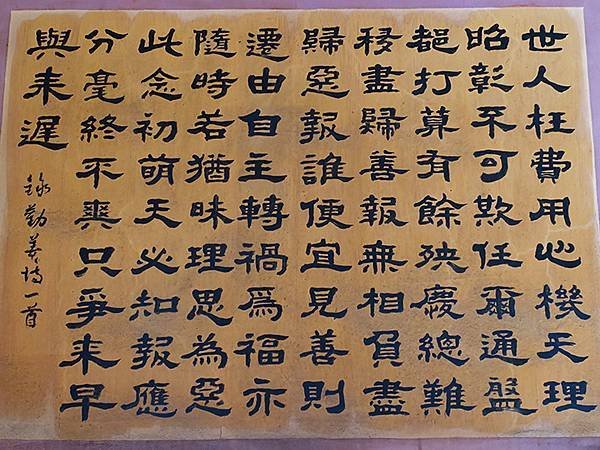 世人枉費用心機天理
昭彰不可欺任爾通盤
都打算有餘殃慶總難
移盡歸善報無相負盡
歸惡報誰便宜見善則
遷由自主轉禍爲福亦
隨時若猶昧理思為惡
此念初萌天必知報應
分毫終不爽只爭来早
與来遲
錄勸善詩一首